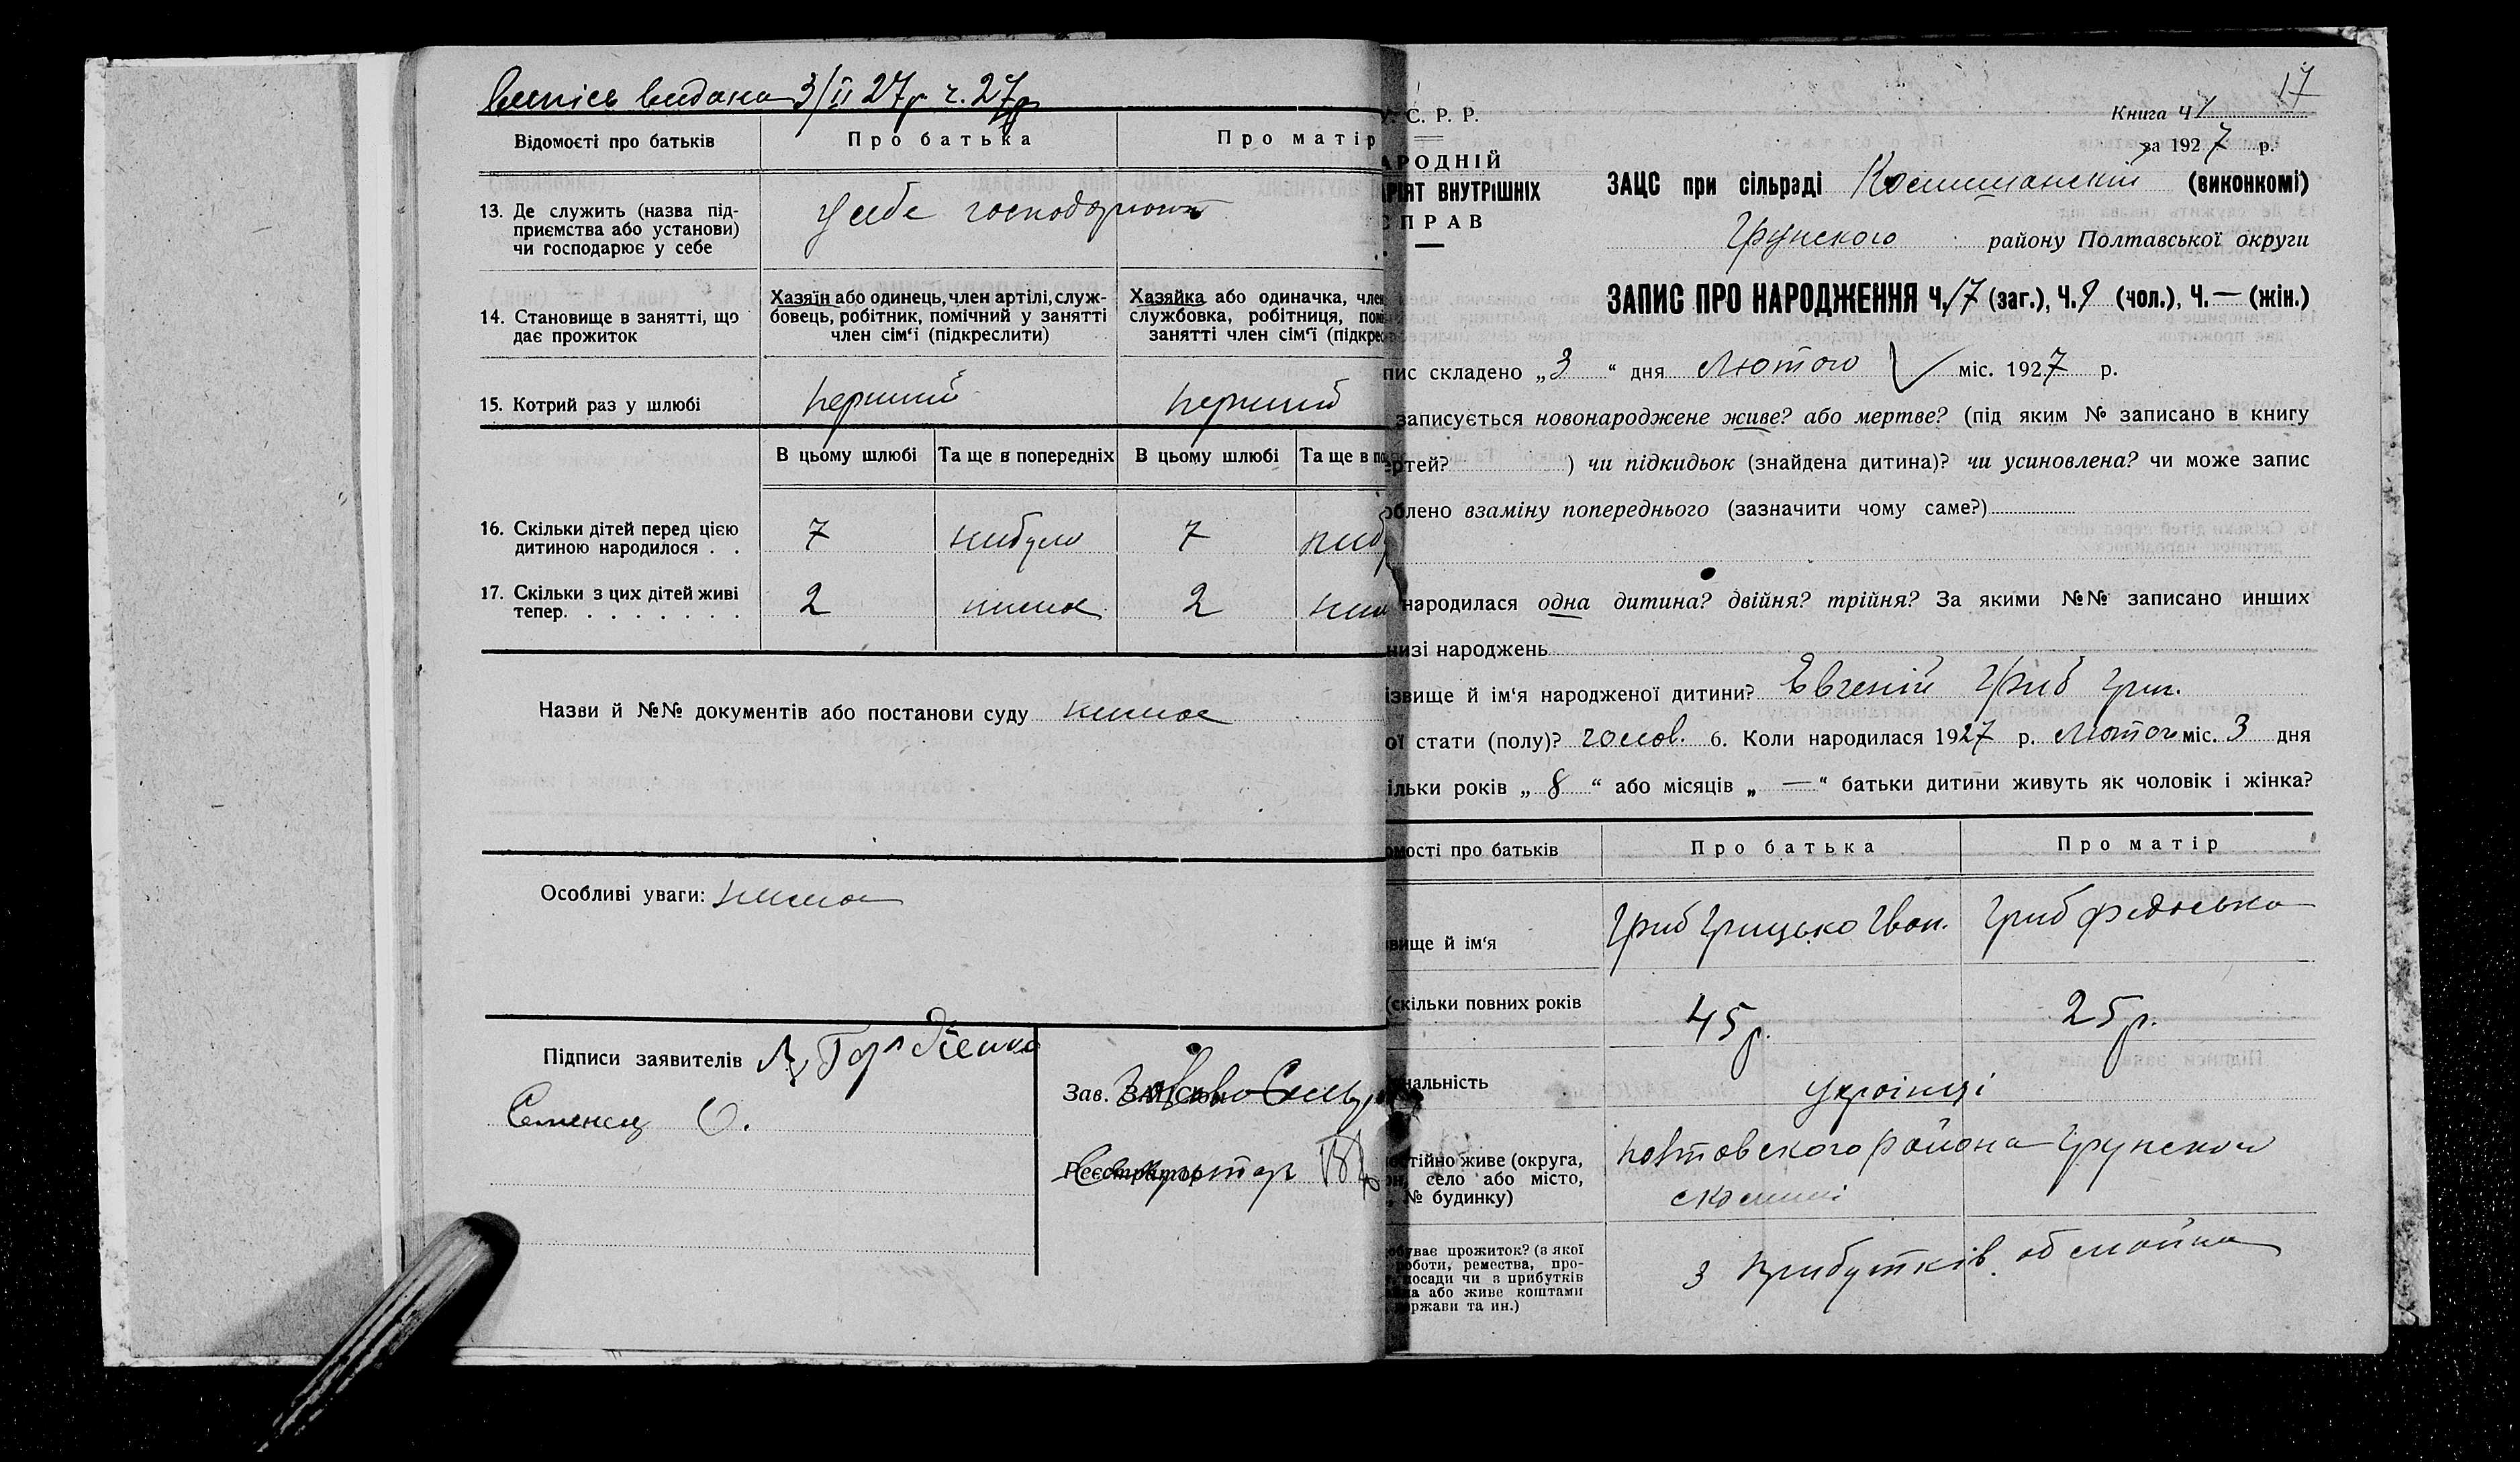 випісь видана 3/II 27р ч. 27
Відомості про батьків Про батька Про матір
13. Де служить (назва під-
приємства або установи)
чи господарює у себе
у себе господарюют
14. Становище в занятті, що
дає прожиток
Хазяїн або одинець, член артілі, служ-
бовець, робітник, помічний у занятті
член сім'ї (підкреслити)
Хазяйка або одиначка, член
службовка, робітниця, пом
занятті член сім'ї (підкрес
15. Котрий раз у шлюбі перший перший
В цьому шлюбі Та ще в попередніх В цьому шлюбі Та ще в по
16. Скільки дітей перед цією
дитиною народилося . .
7 нибуло 7 ниб
17. Скільки з цих дітей живі
тепер. . . . . . . .
2 нима 2 ним
Назви й №№ документів або постанови суду нимає
Особливі уваги: нима
Підписи заявителів
Семенец О.
Зав. ЗАЦСом
Реєстратор Секретар
17
С. Р. Р.
РОДНІЙ
РІЯТ ВНУТРІШНІХ
ПРАВ
Книга Ч 1
за 1927 р.
ЗАЦС при сільраді (виконкомі)
Грунского району Полтавської округи
ЗАПИС ПРО НАРОДЖЕННЯ Ч. 17 (заг.), Ч. 9 (чол.), Ч. — (жін.)
пис складено „3“ дня Лютого міс. 1927 р.
записується новонароджене живе? або мертве? (під яким № записано в книгу
ртей? ) чи підкидьок (знайдена дитина)? чи усиновлена? чи може запис
облено взаміну попереднього (зазначити чому саме?)
народилася одна дитина? двійня? трійня? За якими №№ записано инших
низі народжень
ізвище й ім'я народженої дитини? Евгеній Гриб Гри.
ої стати (полу)? чолов. 6. Коли народилася 1927 р. Лютого міс. 3 дня
ільки років „8“ або місяців „—“ батьки дитини живуть як чоловік і жінка?
мості про батьків Про батька Про матір
вище й ім'я Гриб Грицько Іван. Гриб Федоська
(скільки повних років 45 р. 25 р.
нальність Українці
стійно живе (округа,
он, село або місто,
№ будинку)
Района Грунского
буває прожиток? (з якої
роботи, ремества, про-
посади чи з прибутків
на або живе коштами
ержави та ин.)
з прибутків